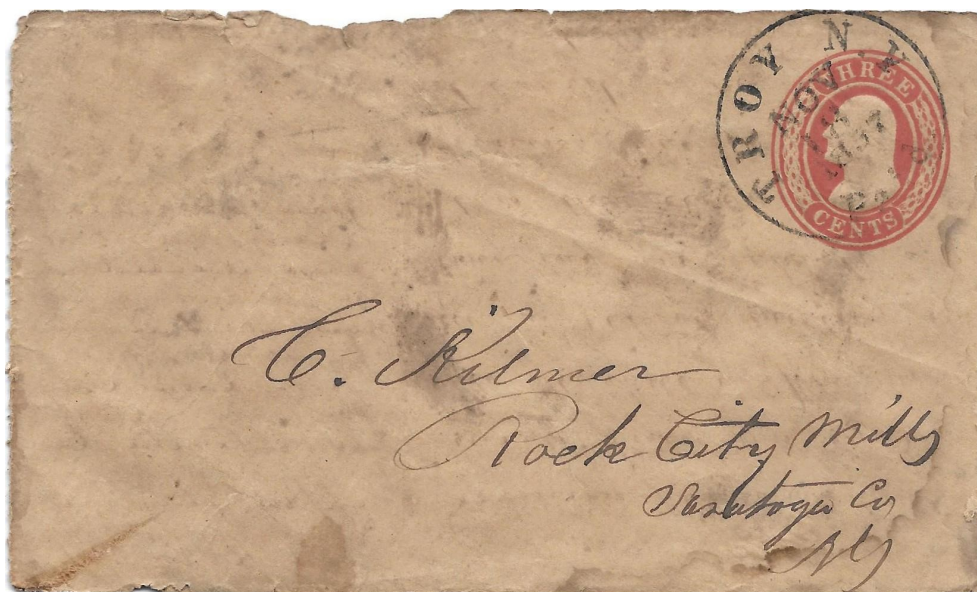 TROY N.Y.
NOV
1857
PAID
THREE
CENTS
C. Kilmer
Rock City Mills
Saratoga Co
NY